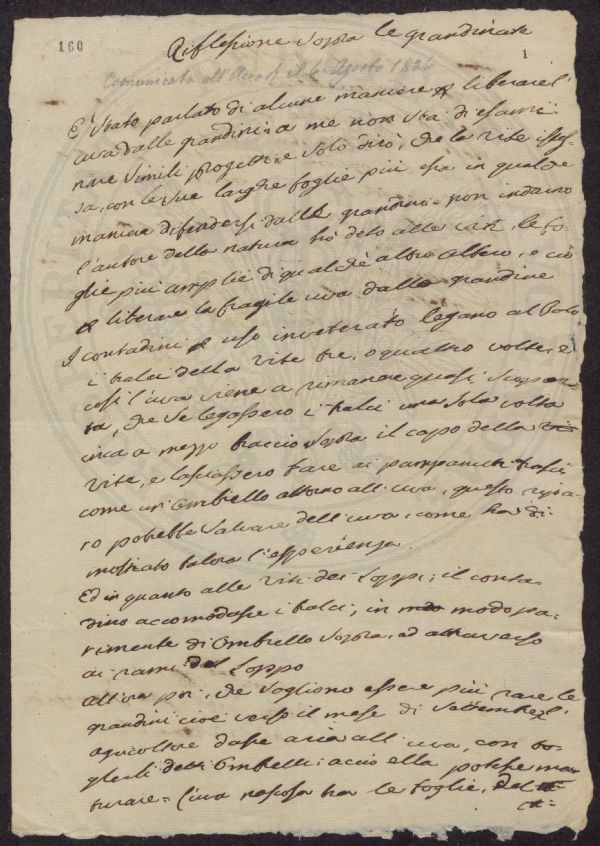 160
Riflesione Sopra le grandinate
1
Comunicata all'Accad. il 6 Agosto 1826
E' stato parlato di alcune maniere p liberare l'
uva dalle grandini: a me non sta di esami-
nare simili progetti; e solo dirò, che la vite istes-
sa, con le sue larghe foglie più essa in qualche
maniera difendersi dalle grandini = non indarno
l'autore della natura hà dato alle viti, le fo-
glie più amplie di qualche altro albero, e ciò
p liberare la fragile uva dalle grandine
I contadini p uso inveterato legano al Palo
i tralci della vite tre, o quattro volte, e
così l'uva viene a rimanere quasi, scoper-
ta, che se legassero i tralci una sola volta
circa a mezzo braccio sopra il capo della
vite, e lasciassero fare ai pampani tralci
come un'Ombrello attorno all'uva, questo ripa-
ro potrebbe salvare dell'uva, come ha di-
mostrato talora l'esperienza.
Ed in quanto alle viti dei Loppi; il conta-
dino accomodasse i tralci, in modo pa-
rimente di Ombrello sopra, ad attraverso
ai rami del Loppo
allora poi, che sogliono essere più rare le
grandini cioè verso il mese di Settembre l'
agricoltore dasse aria all'uva, con to-
glierli detti Ombrelli: acciò ella potesse ma-
turare = l'uva nascosa tra le foglie,